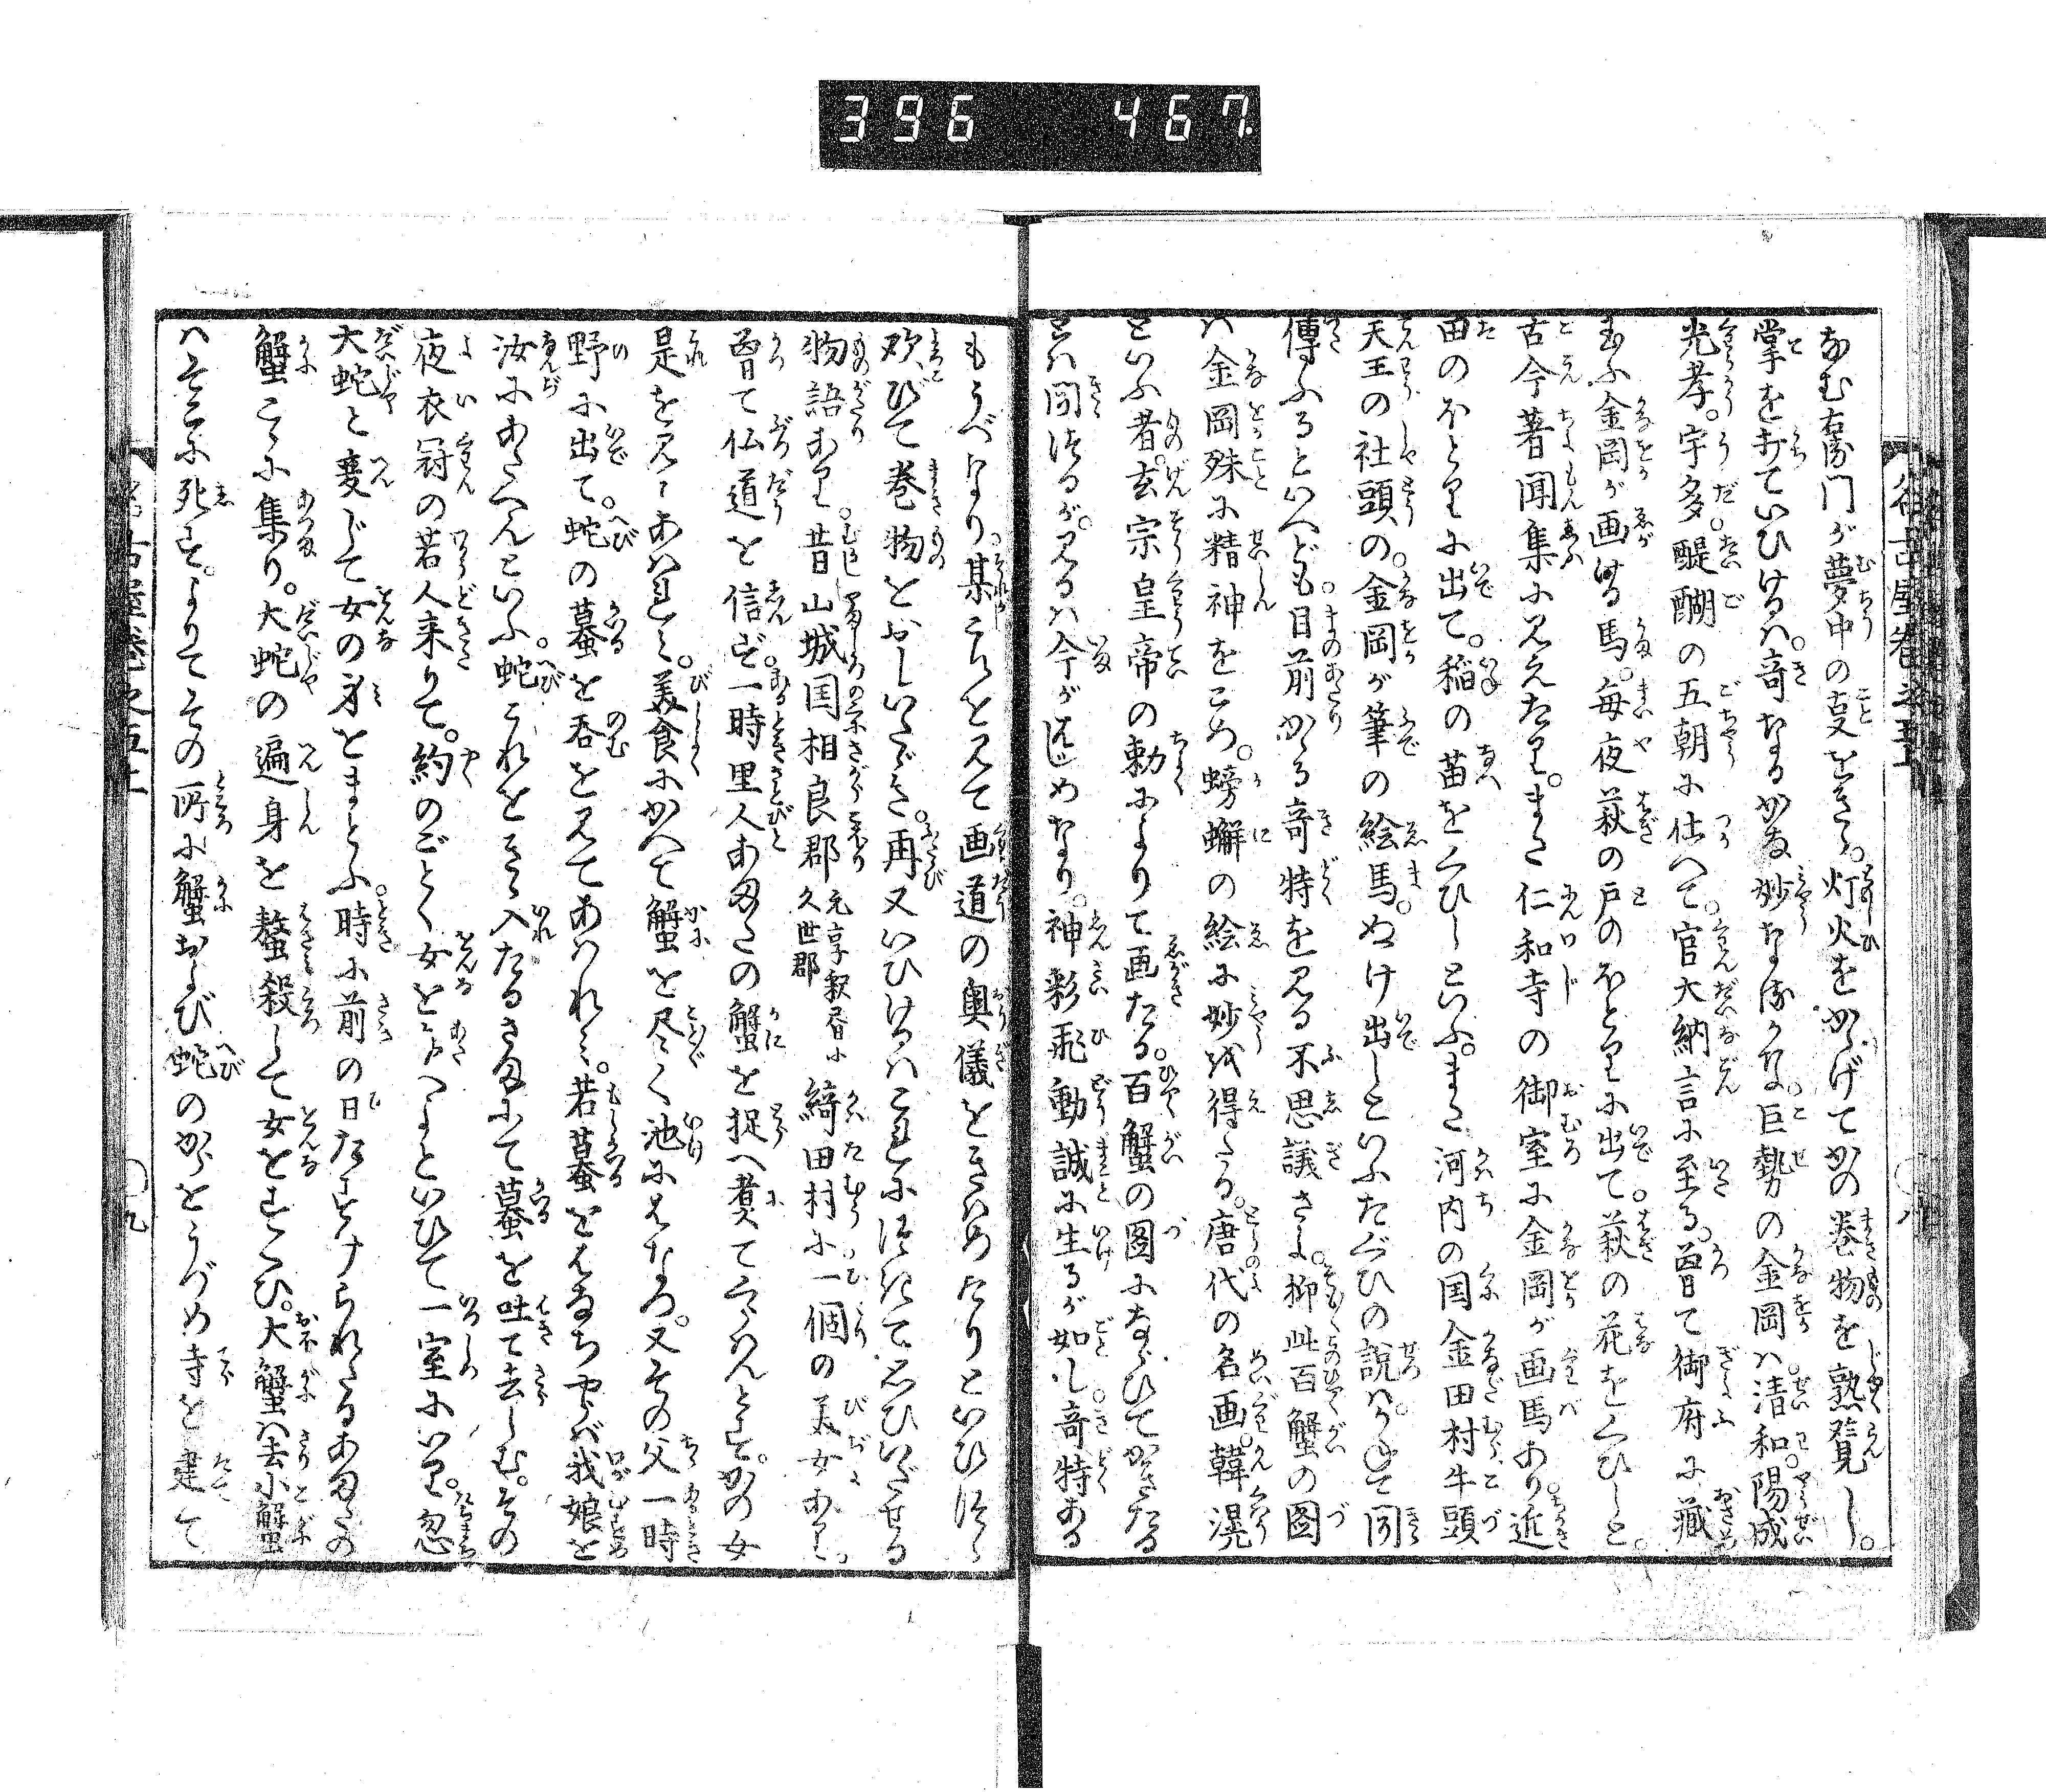 396 467
なむ右衛門が夢中の叓をきゝ。灯火をかゝげてかの巻物を熟覧し。
掌を打ていひけるハ。奇なるかな妙なるかな。巨勢の金岡ハ清和。陽成
光孝。宇多。醍醐の五朝に仕へて。官大納言に至る。曽て御府に蔵
玉ふ金岡が画ける馬。毎夜萩の戸のほとりに出て。萩の花をくひしと。
古今著聞集に見えたり。また仁和寺の御室に金岡が画馬あり。近
田のほとりに出て。稲の苗をくひしといふ。また河内の国金田村牛頭
天王の社頭の。金岡が筆の絵馬。ぬけ出しといふたぐひの説ハ。かねて聞
傳ふるといへども。目前かゝる奇特を見る不思議さよ。抑此百蟹の図
ハ金岡殊に精神をこめ。螃蠏の絵に妙を得たる。唐代の名画。韓滉
といふ者。玄宗皇帝の勅によりて画たる。百蟹の図にならひてかきたる
とハ聞つるが。見るハ今がはじめなり。神彩飛動誠に生るが如し。奇特ある
もうべなり。某これを見て画道の奥儀をきハめたりといひつゝ
欢びて巻物をおしいたゞき。再又いひけるハこれにつけて思ひいだせる
物語あり。昔山城国相良郡元亨釈書に久世郡綺田村に一個の美女あり。
曽て仏道を信ず。一時里人あまたの蟹を捉へ煑てくらハんとす。かの女
是を見てあハれミ。美食にかへて蟹を尽く池にはなつ。又その父一時
野に出て。蛇の蟇を呑を見てあハれミ。若蟇をはなちやらバ我娘を
汝にあたへんといふ。蛇これをきゝ入たるさまにて蟇を吐て去しむ。その
夜衣冠の若人来りて。約のごとく女をあたへよといひて一室に入り。忽
大蛇と変じて女の身をまとふ。時に前の日たすけられたるあまたの
蟹こゝに集り。大蛇の遍身を螯殺して女をすくひ。大蟹ハ去小蟹
ハそこに死す。よりてその所に蟹および蛇のからをうづめ寺を建て